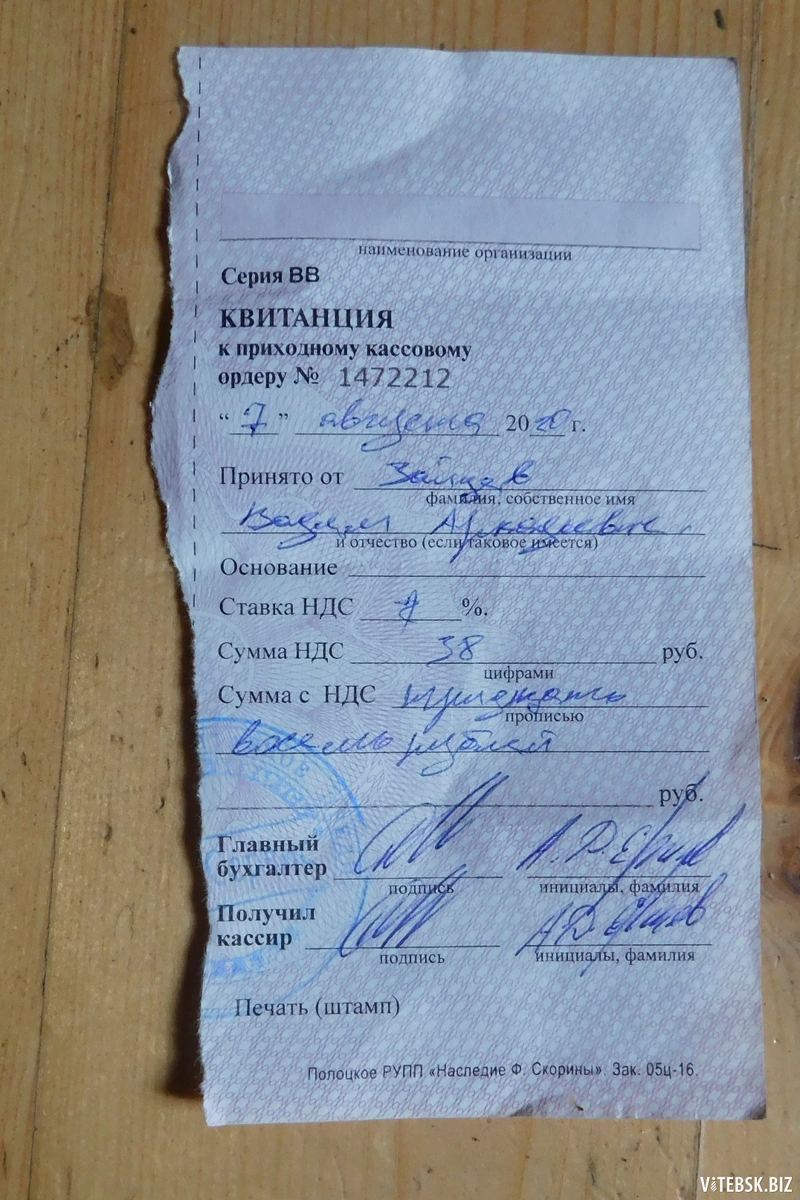 наименование организации
Серия ВВ
КВИТАНЦИЯ
к приходному кассовому
ордеру № 1472212
“ 7 ” августа 2020 г.
Принято от Зайцев
фамилия, собственное имя
Вадим Аркадьевич
и отчество (если таковое имеется)
Основание
Ставка НДС %.
Сумма НДС 38 руб.
цифрами
Сумма с НДС тридцать
прописью
восемь рублей
руб.
Главный
бухгалтер
подпись инициалы, фамилия
Получил
кассир
подпись инициалы, фамилия
Печать (штамп)
Полоцкое РУПП «Наследие Ф. Скорины». Зак. 05ц-16.
ViTEBSK.BIZ